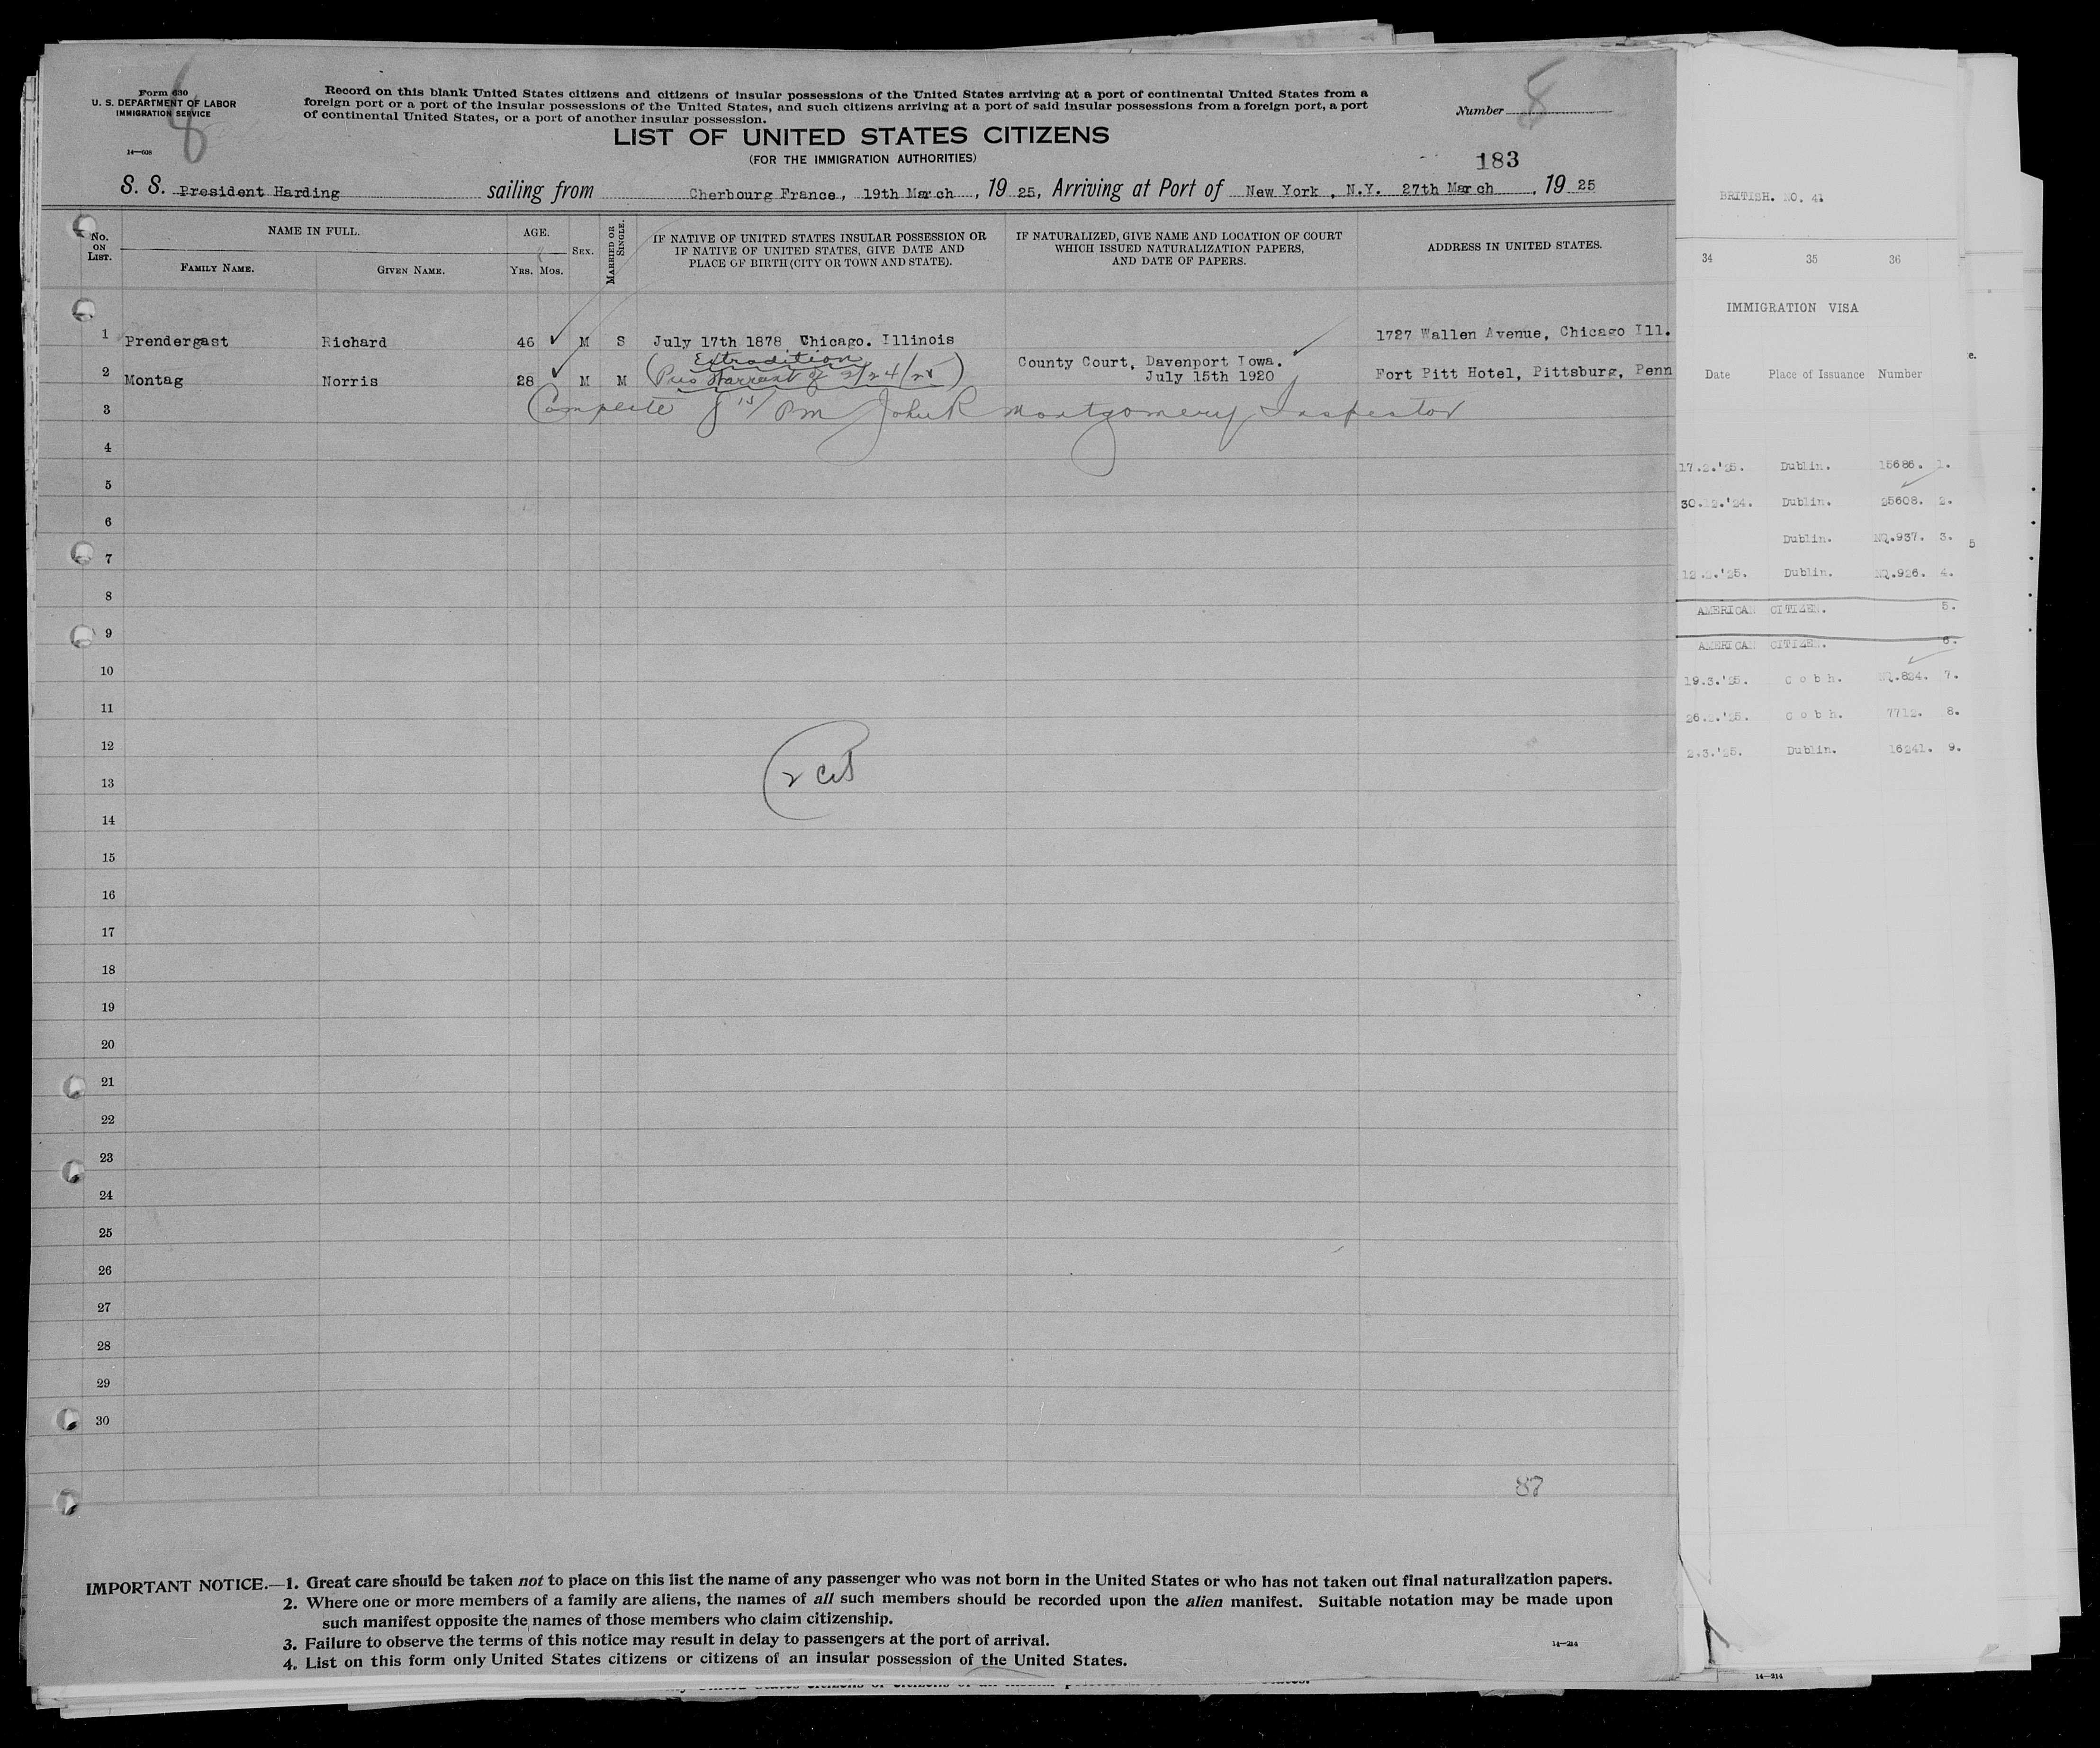 Form 630
U. S. DEPARTMENT OF LABOR
IMMIGRATION SERVICE
14—608
8
Record on this blank United States citizens and citizens of insular possessions of the United States arriving at a port of continental United States from a
foreign port or a port of the insular possessions of the United States, and such citizens arriving at a port of said insular possessions from a foreign port, a port
of continental United States, or a port of another insular possession.
Number 8
LIST OF UNITED STATES CITIZENS
(FOR THE IMMIGRATION AUTHORITIES)
183
S. S. President Harding sailing from Cherbourg France, 19th March, 1925, Arriving at Port of New York, N.Y. 27th March, 1925
No. ON LIST.
NAME IN FULL.
FAMILY NAME.
GIVEN NAME.
AGE.
YRS. MOS.
SEX.
MARRIED OR SINGLE.
IF NATIVE OF UNITED STATES INSULAR POSSESSION OR
IF NATIVE OF UNITED STATES, GIVE DATE AND
PLACE OF BIRTH (CITY OR TOWN AND STATE).
IF NATURALIZED, GIVE NAME AND LOCATION OF COURT
WHICH ISSUED NATURALIZATION PAPERS,
AND DATE OF PAPERS.
ADDRESS IN UNITED STATES.
1 Prendergast Richard 46 M S July 17th 1878 Chicago. Illinois 1727 Wallen Avenue, Chicago Ill.
2 Montag Norris 28 M M (Extradition
Pres Warrant of 2/24/25) County Court, Davenport Iowa.
July 15th 1920 Fort Pitt Hotel, Pittsburg, Penn
3 Complete 8 15/ Pm John R Montgomery Inspector
4
5
6
7
8
9
10
11
12
2 cit
13
14
15
16
17
18
19
20
21
22
23
24
25
26
27
28
29
30
87
IMPORTANT NOTICE.—1. Great care should be taken not to place on this list the name of any passenger who was not born in the United States or who has not taken out final naturalization papers.
2. Where one or more members of a family are aliens, the names of all such members should be recorded upon the alien manifest. Suitable notation may be made upon
such manifest opposite the names of those members who claim citizenship.
3. Failure to observe the terms of this notice may result in delay to passengers at the port of arrival.
4. List on this form only United States citizens or citizens of an insular possession of the United States.
14—214
BRITISH. NO. 41
34 35 36
IMMIGRATION VISA
Date Place of Issuance Number
17.2.'25. Dublin. 15686. 1.
30.12.'24. Dublin. 25608. 2.
Dublin. NQ.937. 3.
12.2.'25. Dublin. NQ.926. 4.
AMERICAN CITIZEN. 5.
AMERICAN CITIZEN. 6.
19.3.'25. Cobh. NQ.824. 7.
26.2.'25. Cobh. 7712. 8.
2.3.'25. Dublin. 16241. 9.
e.
5
14—214